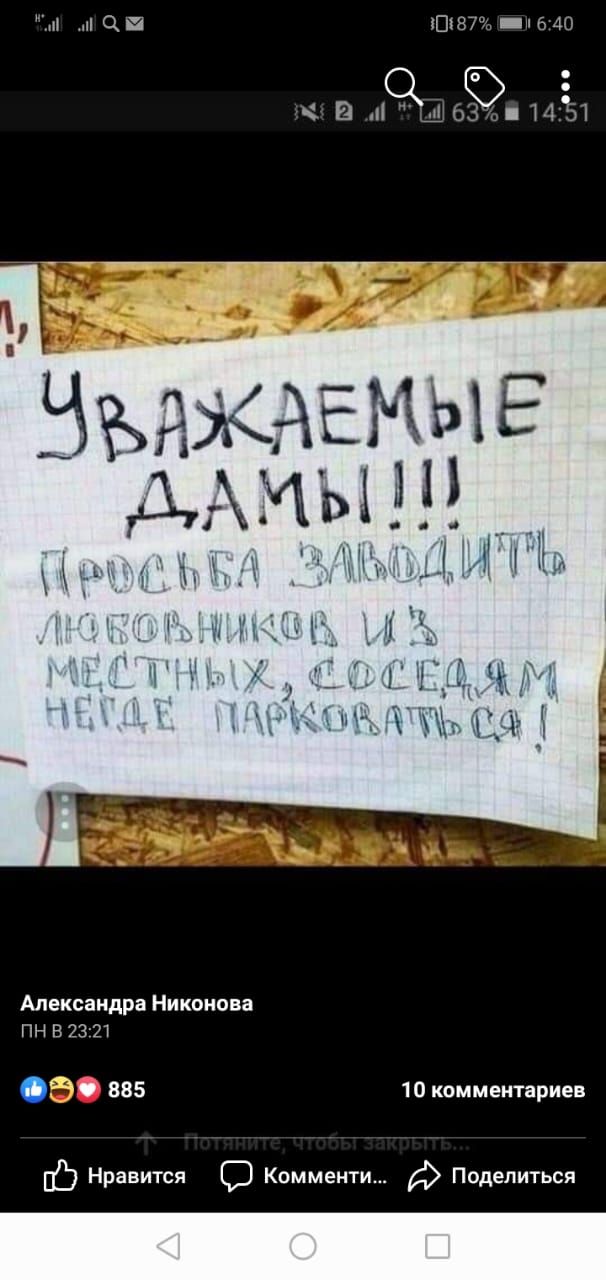 87% 6:40
2 H+ 63% 14:51
УВАЖАЕМЫЕ
ДАМЫ!!!
ПРОСЬБА ЗАВОДИТЬ
ЛЮБОВНИКОВ ИЗ
МЕСТНЫХ, СОСЕДЯМ
НЕГДЕ ПАРКОВАТЬСЯ!
Александра Никонова
ПН В 23:21
885 10 комментариев
Потяните, чтобы закрыть...
Нравится Комменти... Поделиться